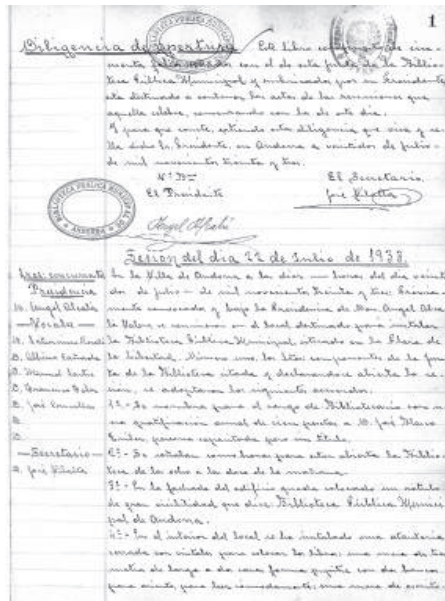 1
Diligencia de apertura Este libro compuesto de cin-
cuenta folios sellados con el de esta Junta de la Biblio-
teca Pública Municipal y rubricados por su Presidente
está destinado a contener las actas de las reuniones que
aquella celebre, comenzando con la de este día.
Y para que conste, extiendo esta diligencia que visa y se-
lla dicho Sr. Presidente, en Andorra a veintidos de julio
de mil novecientos treinta y tres.
Vº Bº
El Secretario
El Presidente
José Pilotta
BIBLIOTECA PÚBLICA MUNICIPAL DE ANDORRA
Angel Alcalá
Sesión del día 22 de Julio de 1933.
Sres. concurrentes
Presidencia
D. Angel Alcalá
— Vocales —
D. Manuel
D. José
D.
D.
— Secretario —
D. José Pilotta
En la Villa de Andorra a las diez horas del día veinti-
dos de julio de mil novecientos treinta y tres. Previa-
mente convocados y bajo la Presidencia de Don Angel Alca-
lá se reunieron en el local destinado para instalar
la Biblioteca Pública Municipal, situado en la Plaza de
la Libertad, número uno, los Sres. componentes de la Jun-
ta de la Biblioteca citada y declarándose abierta la se-
sión, se adoptaron los siguientes acuerdos.
1º - Se nombra para el cargo de Bibliotecario con u-
na gratificación anual de cien pesetas a D. José Blasco
persona capacitada para su título.
2º - Se señalan como horas para estar abierta la Biblio-
teca de las ocho a las doce de la mañana.
3º - En la fachada del edificio queda colocado un rótulo
de gran visibilidad que dice, Biblioteca Pública Munici-
pal de Andorra.
4º - En el interior del local se ha instalado una estantería
cerrada con cristales para colocar los libros; una mesa de tres
metros de larga a dos caras forma pupitre con dos bancos
para asiento, para leer cómodamente; una mesa de escrito-